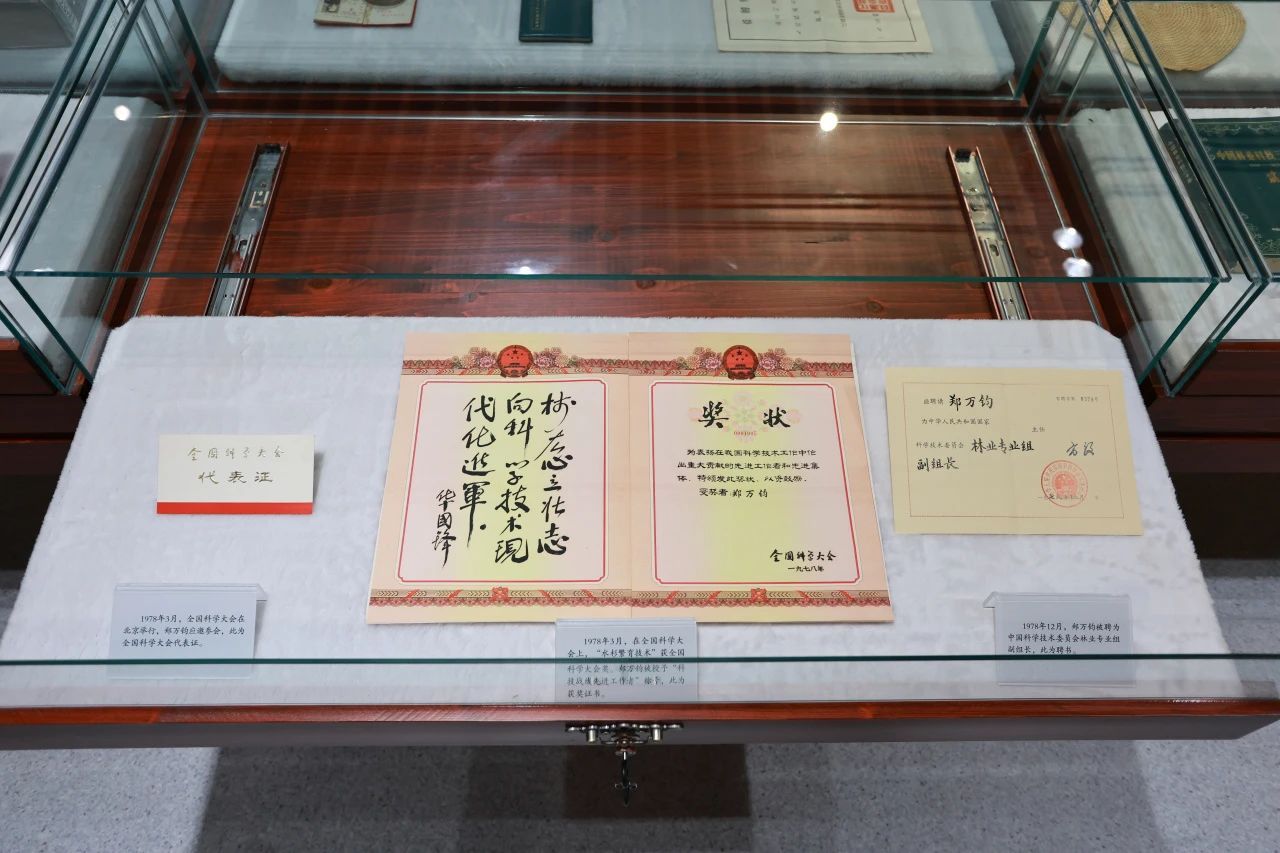 全国科学大会
代表证
树雄心立壮志
向科学技术現
代化進軍。
华國锋
奖状
为表扬在我国科学技术工作中作
出重大贡献的先进工作者和先进集
体，特颁发此奖状，以资鼓励。
受奖者：郑万钧
全国科学大会
一九七八年
兹聘请 郑万钧
为中华人民共和国国家
主任
科学技术委员会 林业专业组 方毅
副组长
1978年3月，全国科学大会在
北京举行，郑万钧应邀参会，此为
全国科学大会代表证。
1978年3月，在全国科学大
会上，“水杉繁育技术”获全国
科学大会奖。郑万钧被授予“科
技战线先进工作者”称号，此为
获奖证书。
1978年12月，郑万钧被聘为
中国科学技术委员会林业专业组
副组长，此为聘书。